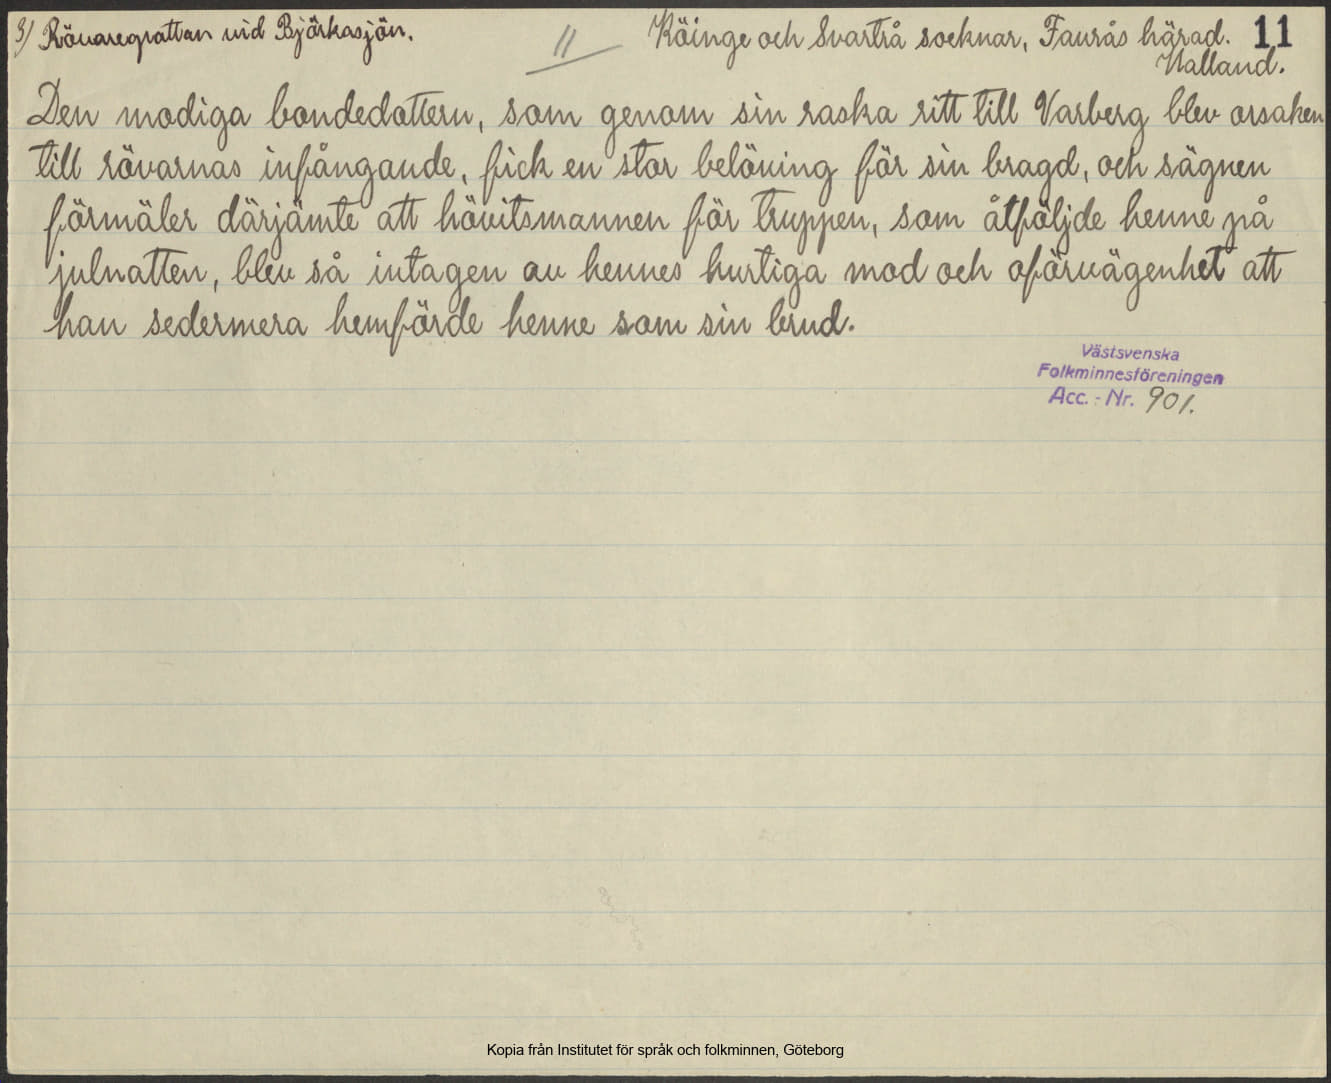 3) Rövaregrottan vid Björkasjön.
11
Köinge och Svartrå socknar, Faurås härad. 11
Halland.
Den modiga bondedottern, som genom sin raska ritt till Varberg blev orsaken
till rövarnas infångande, fick en stor belöning för sin bragd, och sägnen
förmäler därjämte att hövitsmannen för truppen, som åtföljde henne på
julnatten, blev så intagen av hennes hurtiga mod och oförvägenhet att
han sedermera hemförde henne som sin brud.
Västsvenska
Folkminnesföreningen
Acc. - Nr. 901.
Kopia från Institutet för språk och folkminnen, Göteborg